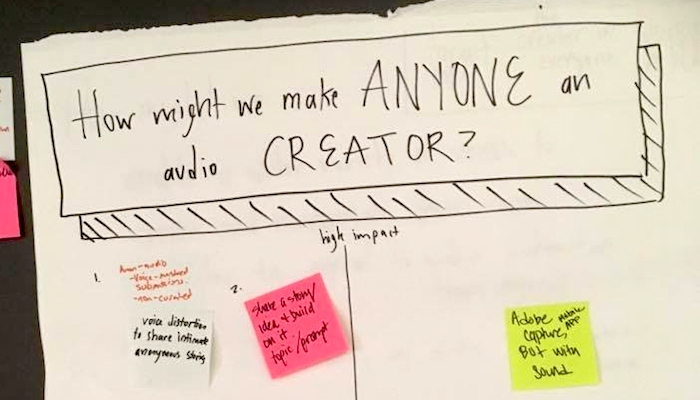 How might we make ANYONE an
audio CREATOR?
high impact
1.
Anon-audio
-Voice-masked
submissions.
-non-curated
voice distortion
to share intimate
anonymous storys
2.
share a story/
idea & build
on it
topic/prompt
Adobe mobile
Capture, APP
BUT with
Sound